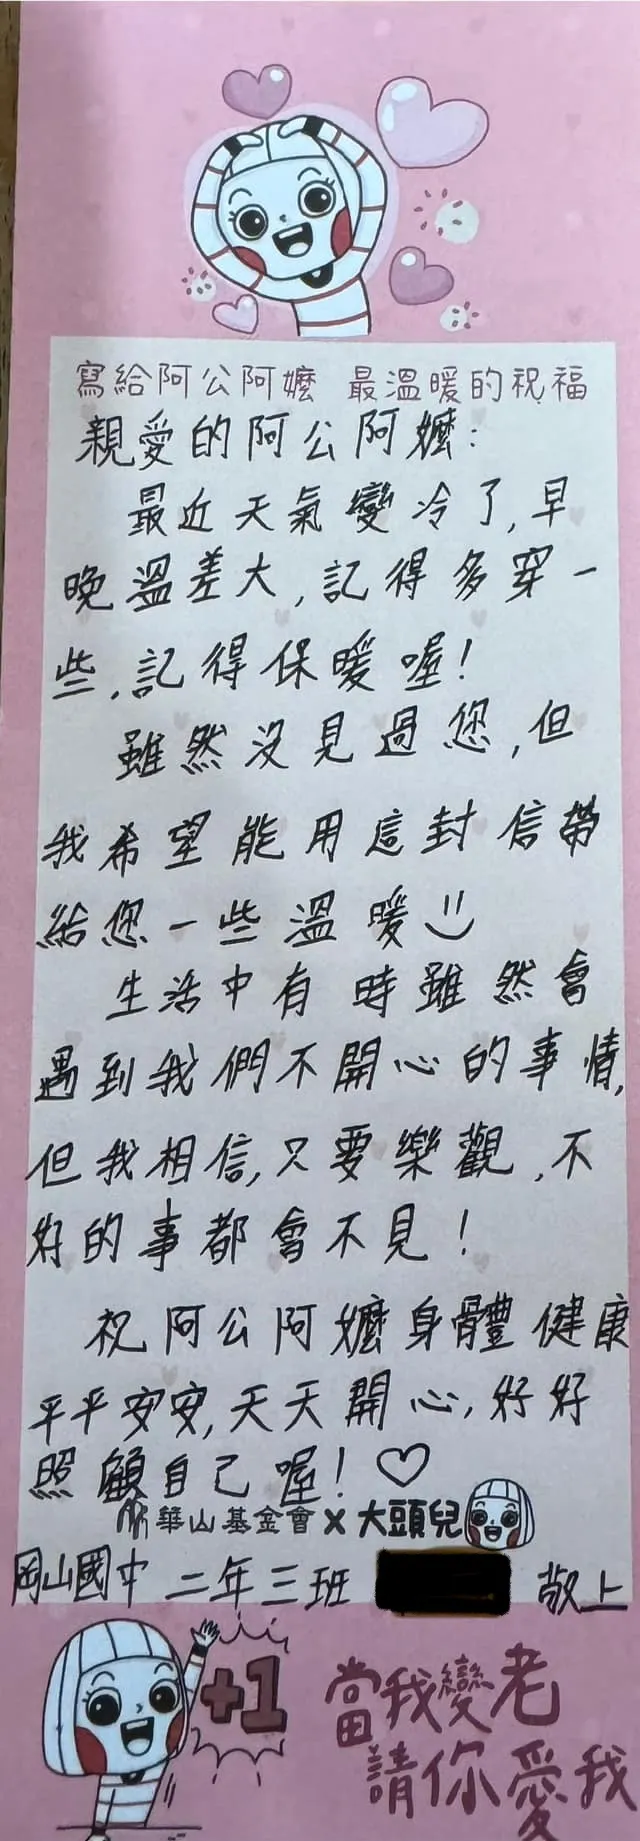 寫給阿公阿嬤 最溫暖的祝福
親愛的阿公阿嬤：
最近天氣變冷了,早
晚溫差大,記得多穿一
些,記得保暖喔!
雖然沒見過您,但
我希望能用這封信帶
給您一些溫暖
生活中有時雖然會
遇到我們不開心的事情,
但我相信,只要樂觀,不
好的事都會不見!
祝阿公阿嬤身體健康
平平安安,天天開心,好好
照顧自己喔!♡
華山基金會 x 大頭兒
岡山國中 二年三班 敬上
+1
當我變老
請你愛我